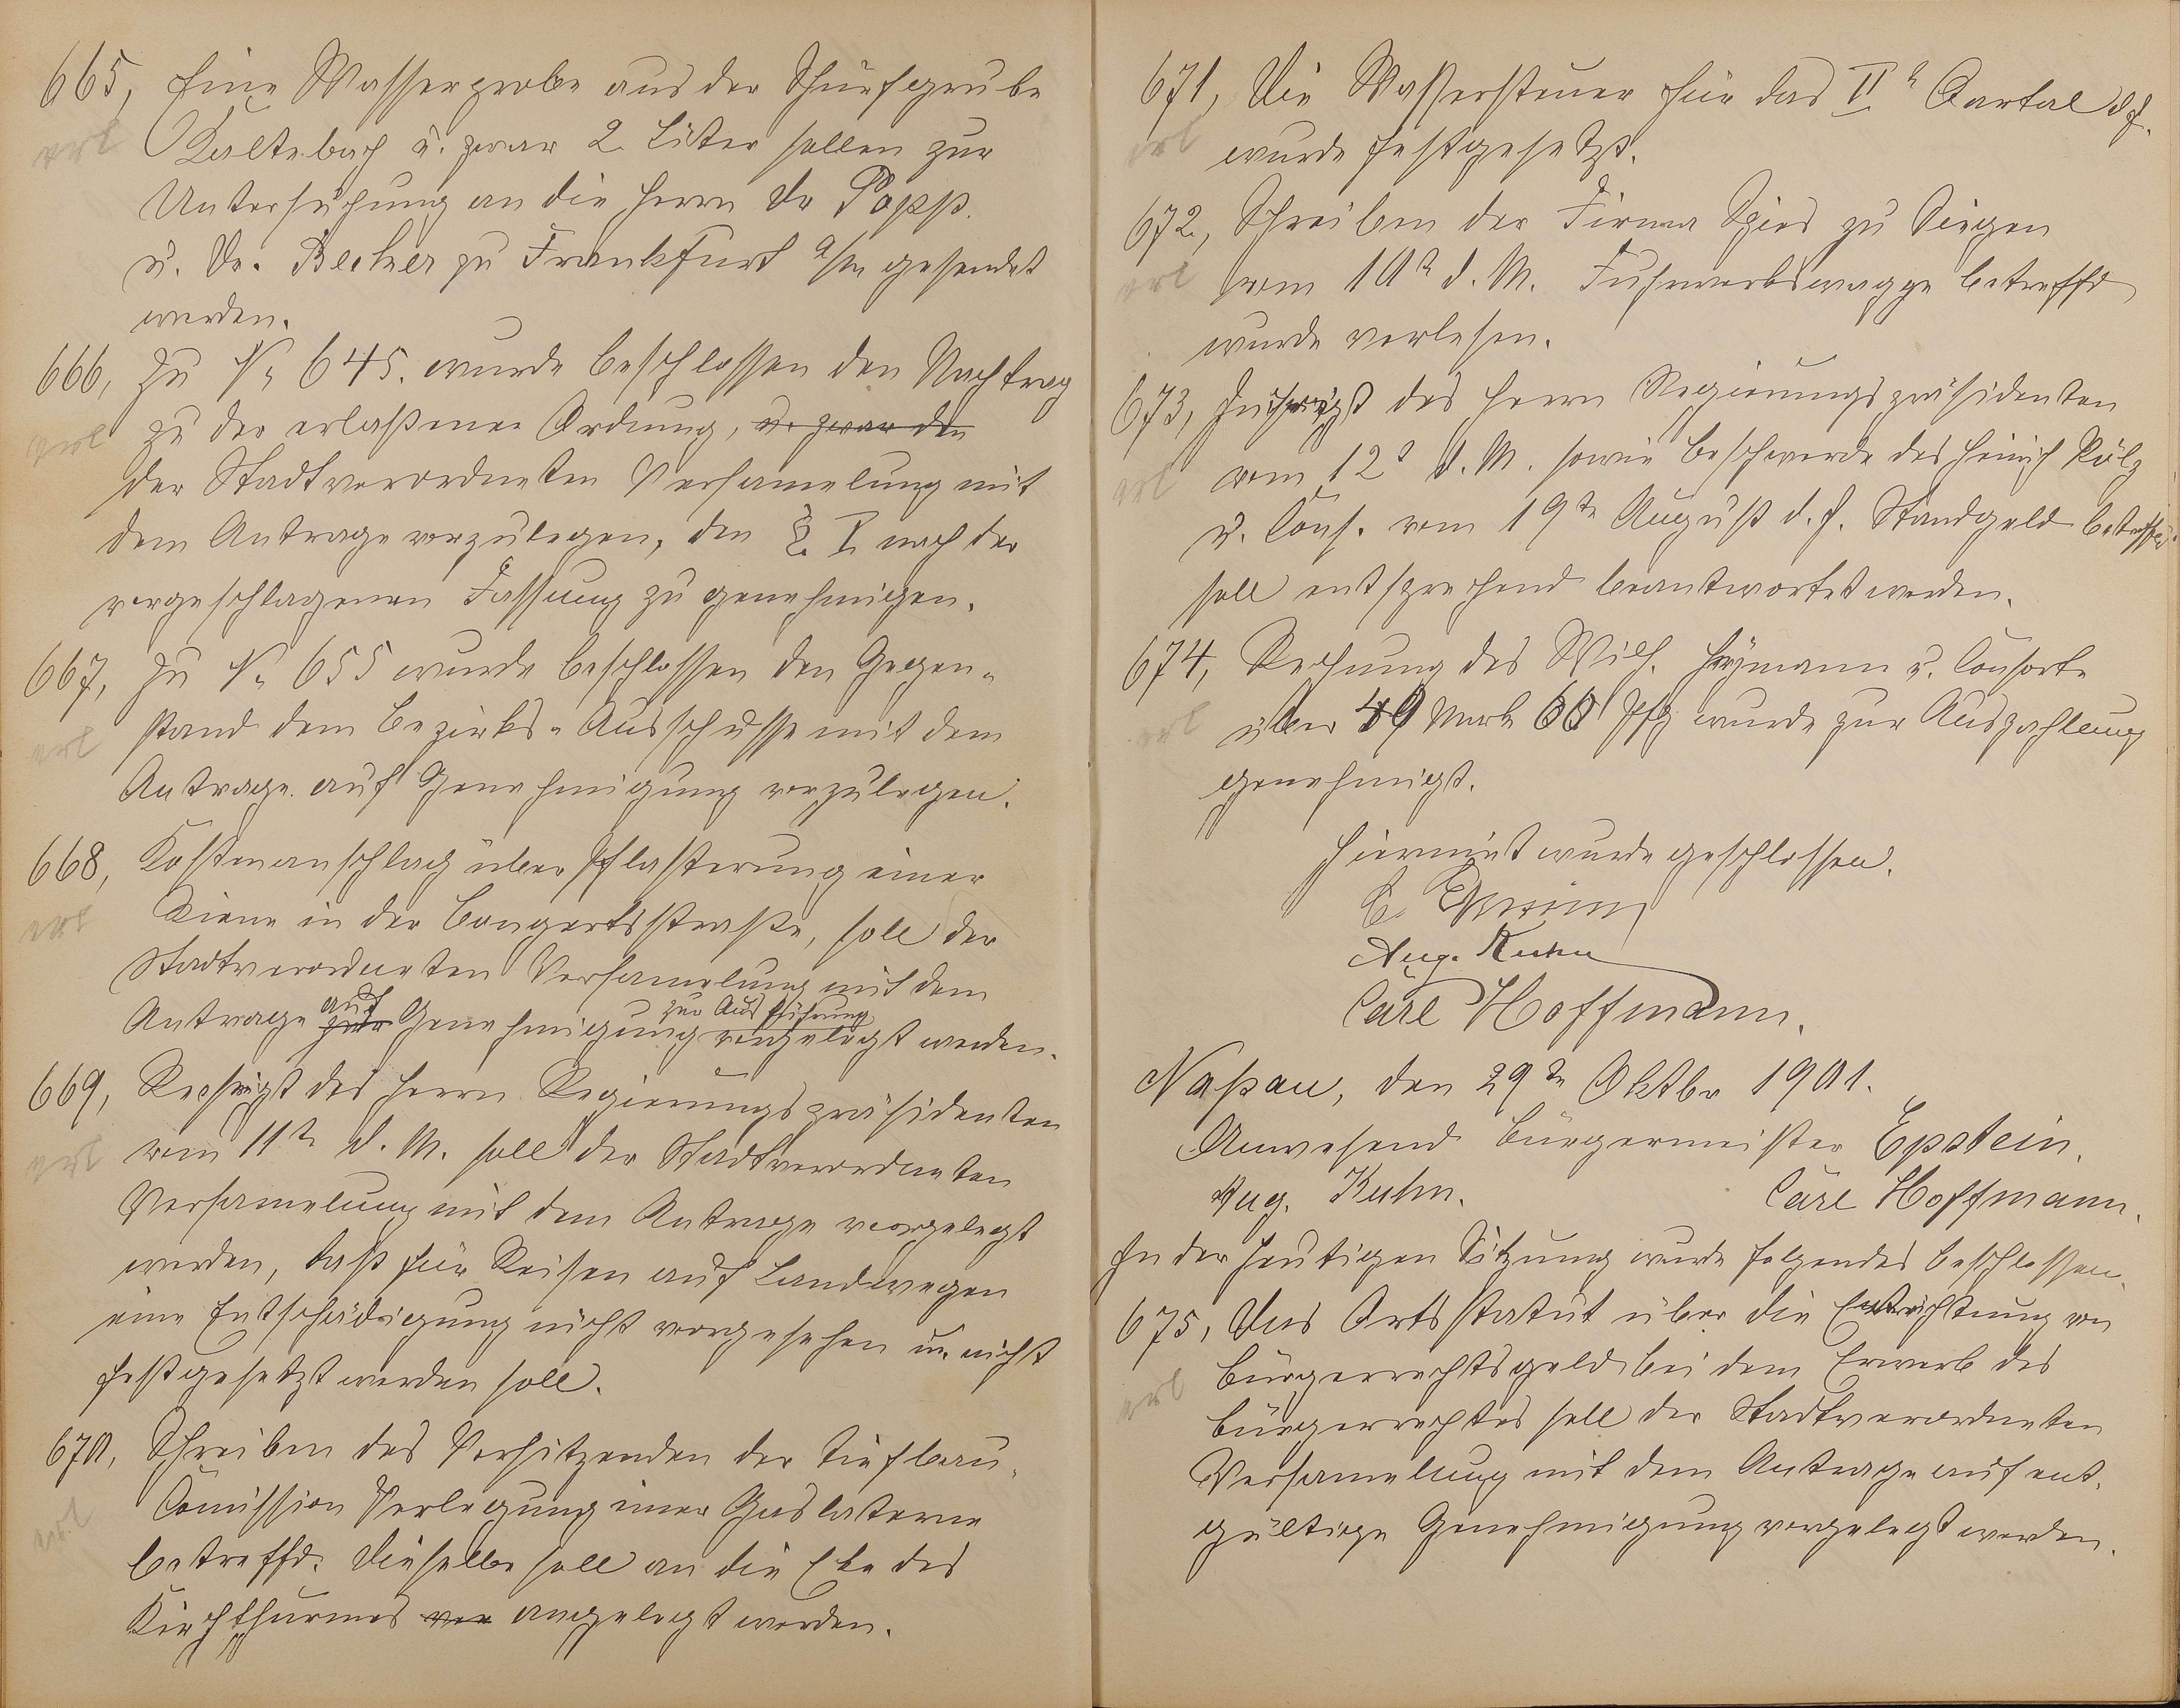 665, Eine Wasserprobe aus der Schürfgrube
erl Kaltebach u. zwar 2 Liter sollen zur
Untersuchung an die Herrn Dr Popp
u. Dr. Becker zu Frankfurt a/m gesendet
werden.
666, Zu No 645. wurde beschlossen den Nachtrag
erl zu der erlaßenen Ordnung, u. zwar den
der Stadtverordneten Versamelung mit
dem Antrage vorzulegen, den §. I. nach der
vorgeschlagenen Fassung zu genehmigen.
667, Zu No 655 wurde beschlossen den Gegen-
erl stand dem Bezirks-Ausschusse mit dem
Antrage auf Genehmigung vorzulegen.
668, Kostenanschlag über Pflasterung einer
erl Rinne in der Bongertsstraße, soll der
Stadtverordneten Versamelung mit dem
Antrage zur auf Genehmigung zur Ausführung vorgelegt werden.
669, Rescript des Herrn Regierungspräsidenten
erl vom 11ten d. M. soll der Stadtverordneten
Versamelung mit dem Antrage vorgelegt
werden, daß für Reisen auf Landwegen
eine Entschädigung nicht vorgesehen u. nicht
festgesetzt werden soll.
670, Schreiben des Vorsitzenden der Tiefbau-
erl Comission Verlegung einer Gaslaterne
betreffd. Dieselbe soll an die Eke des
Kirchthurmes vor angelegt werden.
671, Die Wassersteuer für das IIe Quartal d J.
erl wurde festgesetzt.
672, Schreiben der Firma Spies zu Siegen
erl vom 10ten d. M. Fuhrwerkswaage betreffd
wurde verlesen.
673, Zuschrift des Herrn Regierungspräsidenten
erl vom 12t d. M. sowie Beschwerde des Heinrich Pölz
u. Cons. vom 19ten August d. J. Standgeld betreffd.
soll entsprechend beantwortet werden.
674, Rechnung des Wilh. Heymann u. Consorte
erl über 49 Mark 60 Pfg wurde zur Auszahlung
genehmigt.
Hiermit wurde geschlossen.
Aug. Kuhn
Carl Hoffmann.
Naßau, den 29ten Oktbr 1901.
Anwesend Bürgermeister Epstein.
Aug. Kuhn. Carl Hoffmann.
In der heutigen Sitzung wurde folgendes beschlossen.
675, Das Ortsstatut über die Entrichtung von
erl Bürgerrechtsgeld bei dem Erwerb des
Bürgerrechtes soll der Stadtverordneten
Versamelung mit dem Antrage auf ent-
gültige Genehmigung vorgelegt werden.